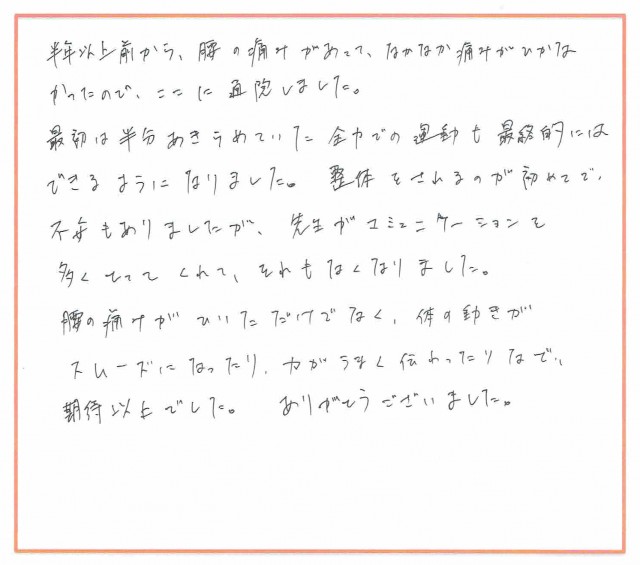 半年以上前から、腰の痛みがあって、なかなか痛みがひかな
かったので、ここに通院しました。
最初は半分あきらめていた全力での運動も最終的には
できるようになりました。整体をされるのが初めてで、
不安もありましたが、先生がコミュニケーションを
多くとってくれて、それもなくなりました。
腰の痛みがひいただけでなく、体の動きが
スムーズになったり、力がうまく伝わったりなど、
期待以上でした。ありがとうございました。